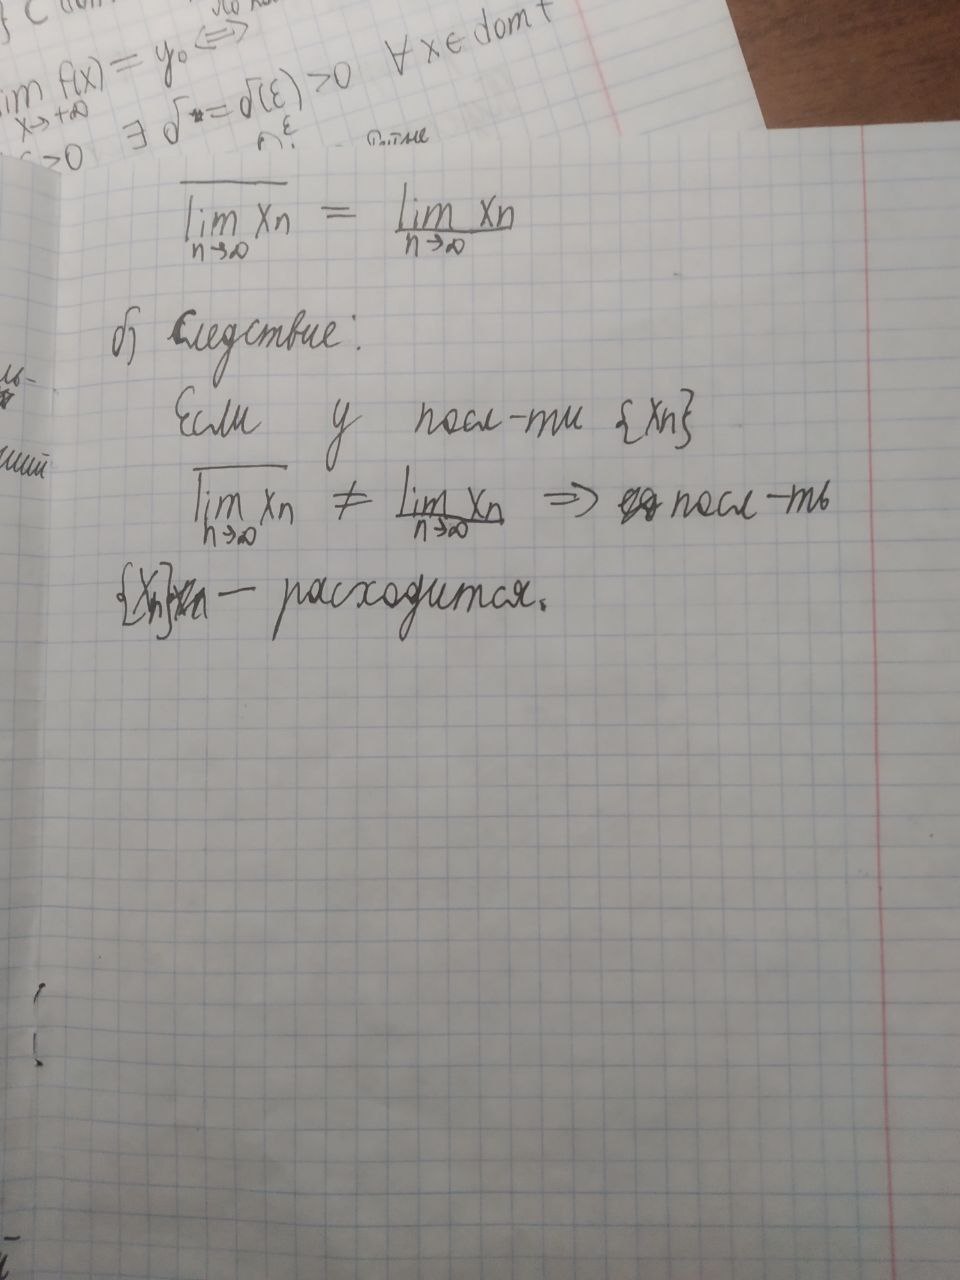 lim f(x) = y₀ <=>
x→+∞
>0 ∃ δ = δ(ε) >0 ∀ x ∈ dom f
$\overline{\lim\limits_{n→∞}} x_n = \underline{\lim\limits_{n→∞}} x_n$
б) Следствие:
Если у посл-ти {xn}
$\overline{\lim\limits_{n→∞}} x_n ≠ \underline{\lim\limits_{n→∞}} x_n$ => посл-ть
{xn} — расходится.